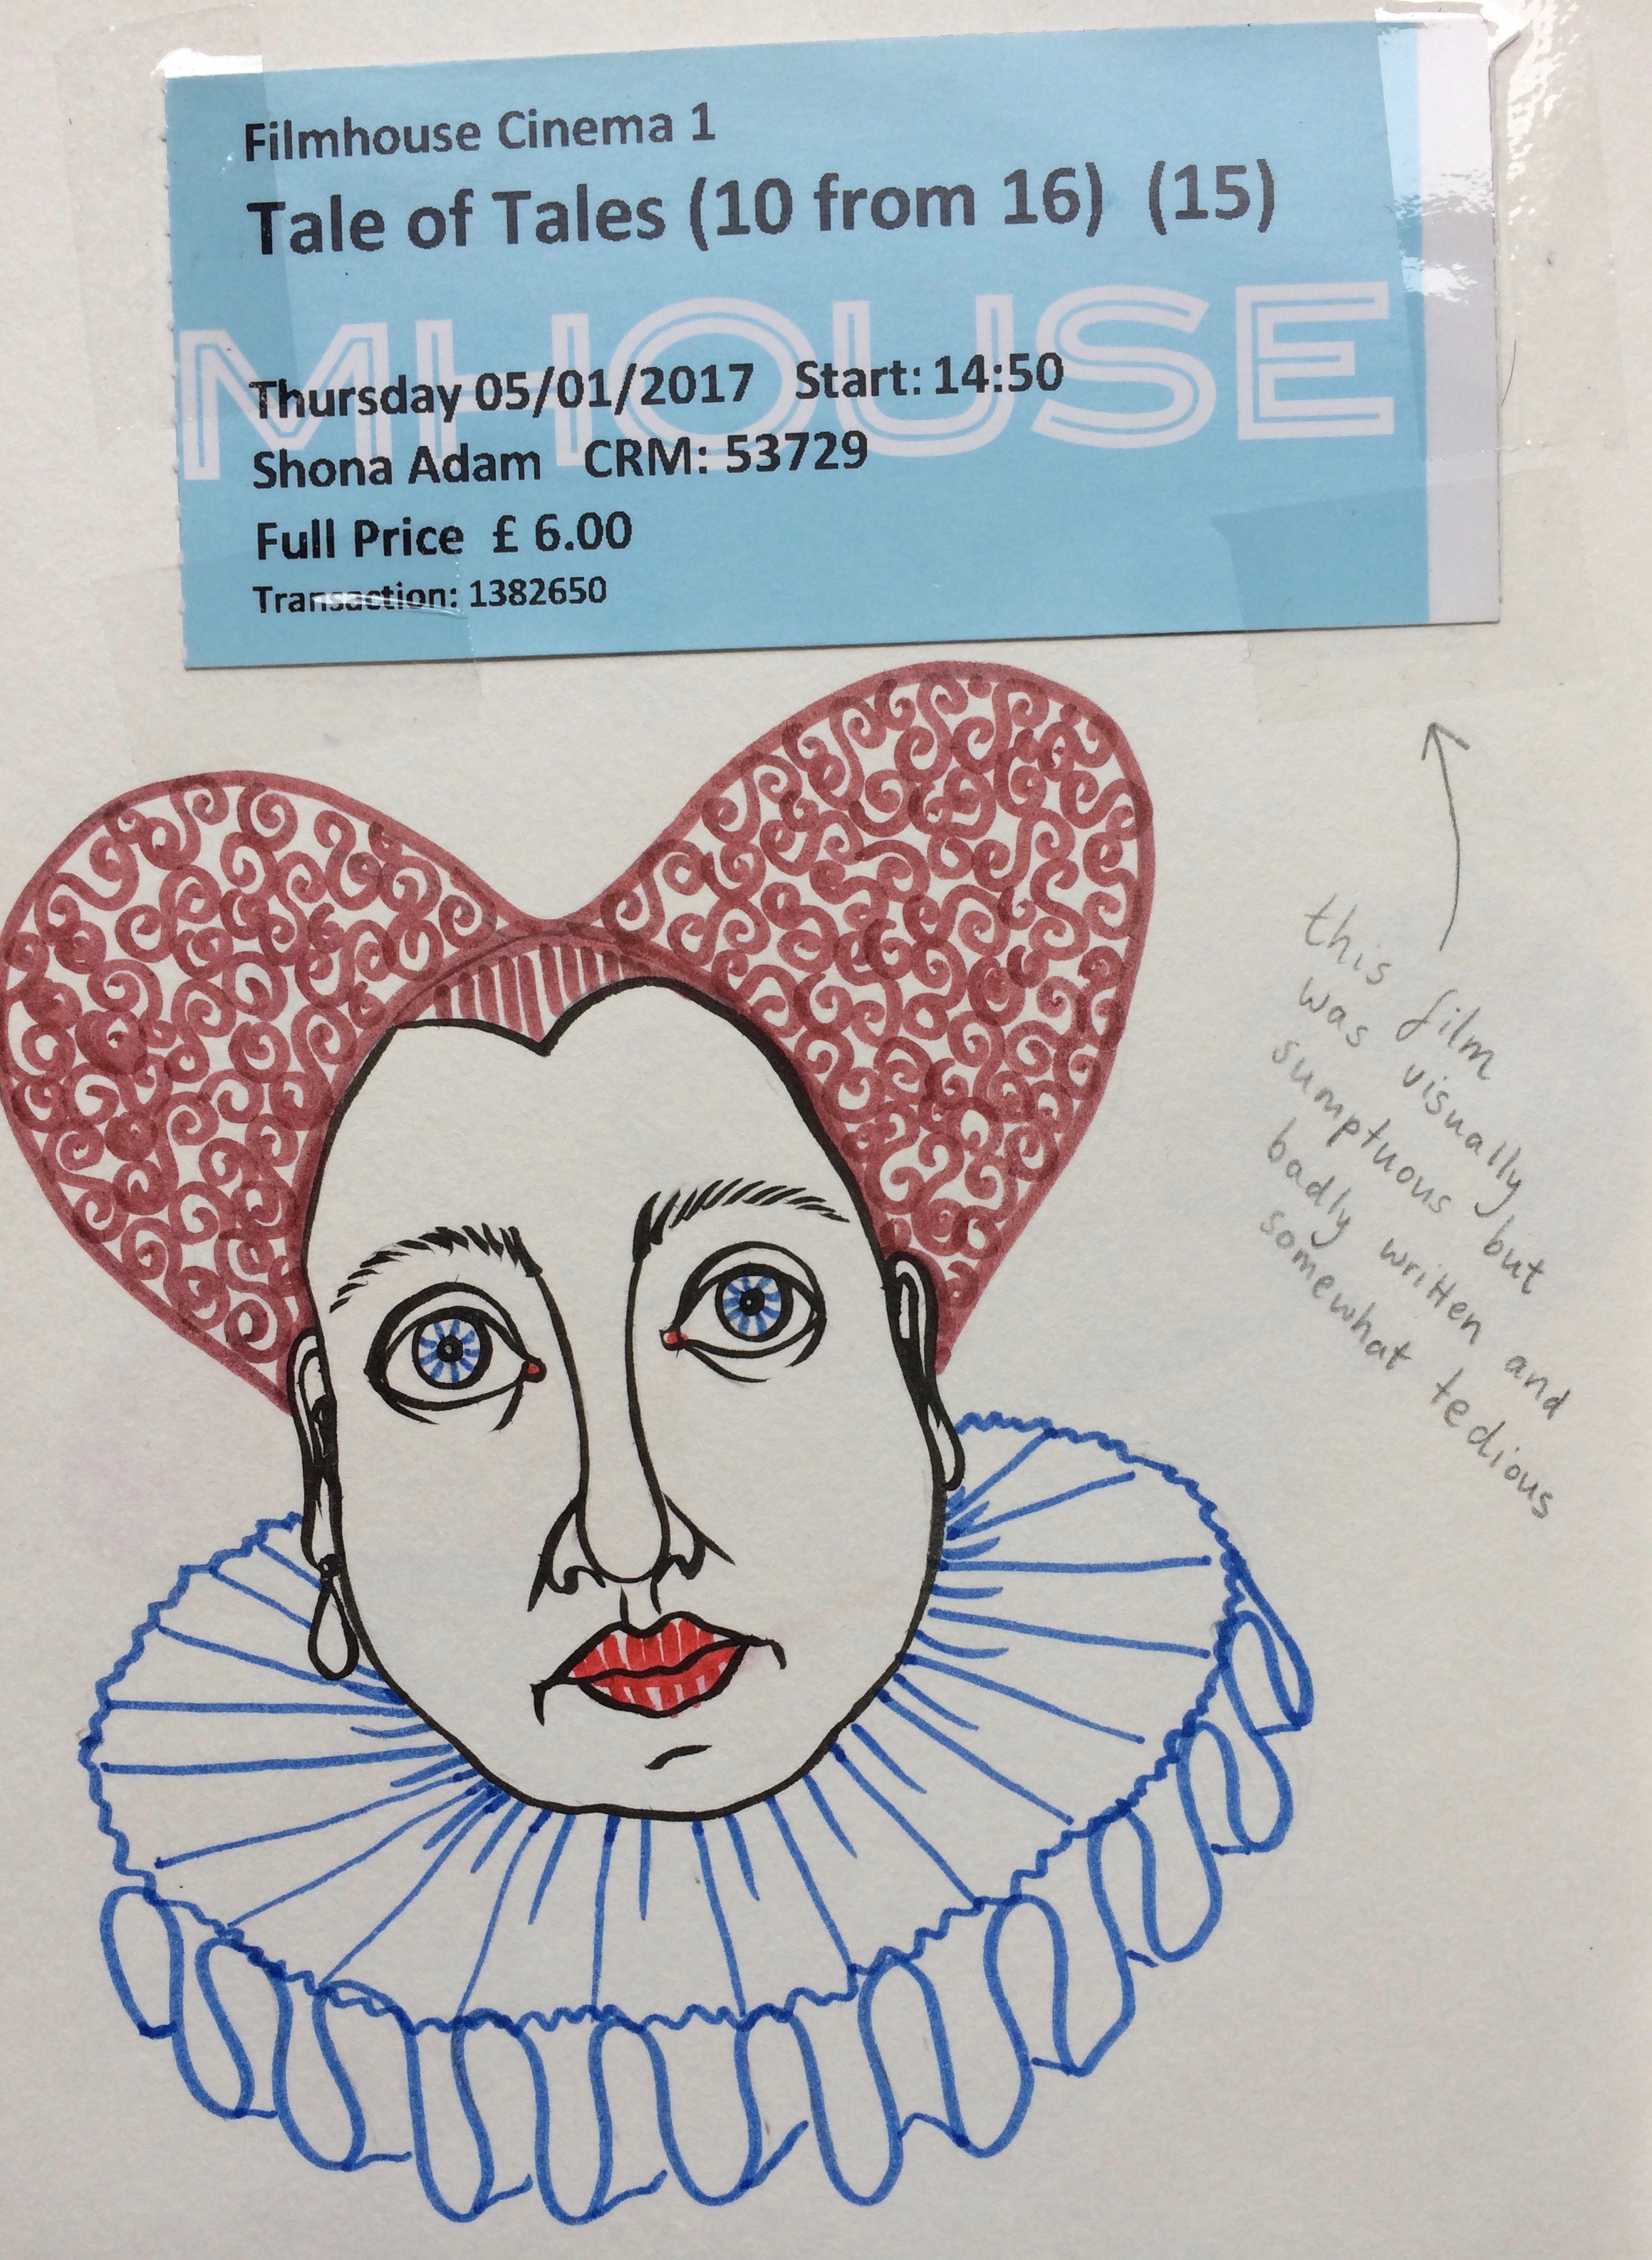 Filmhouse Cinema 1
Tale of Tales (10 from 16) (15)
MHOUSE
Thursday 05/01/2017 Start: 14:50
Shona Adam CRM: 53729
Full Price £ 6.00
Transaction: 1382650
this film
was visually
sumptuous but
badly written and
somewhat tedious